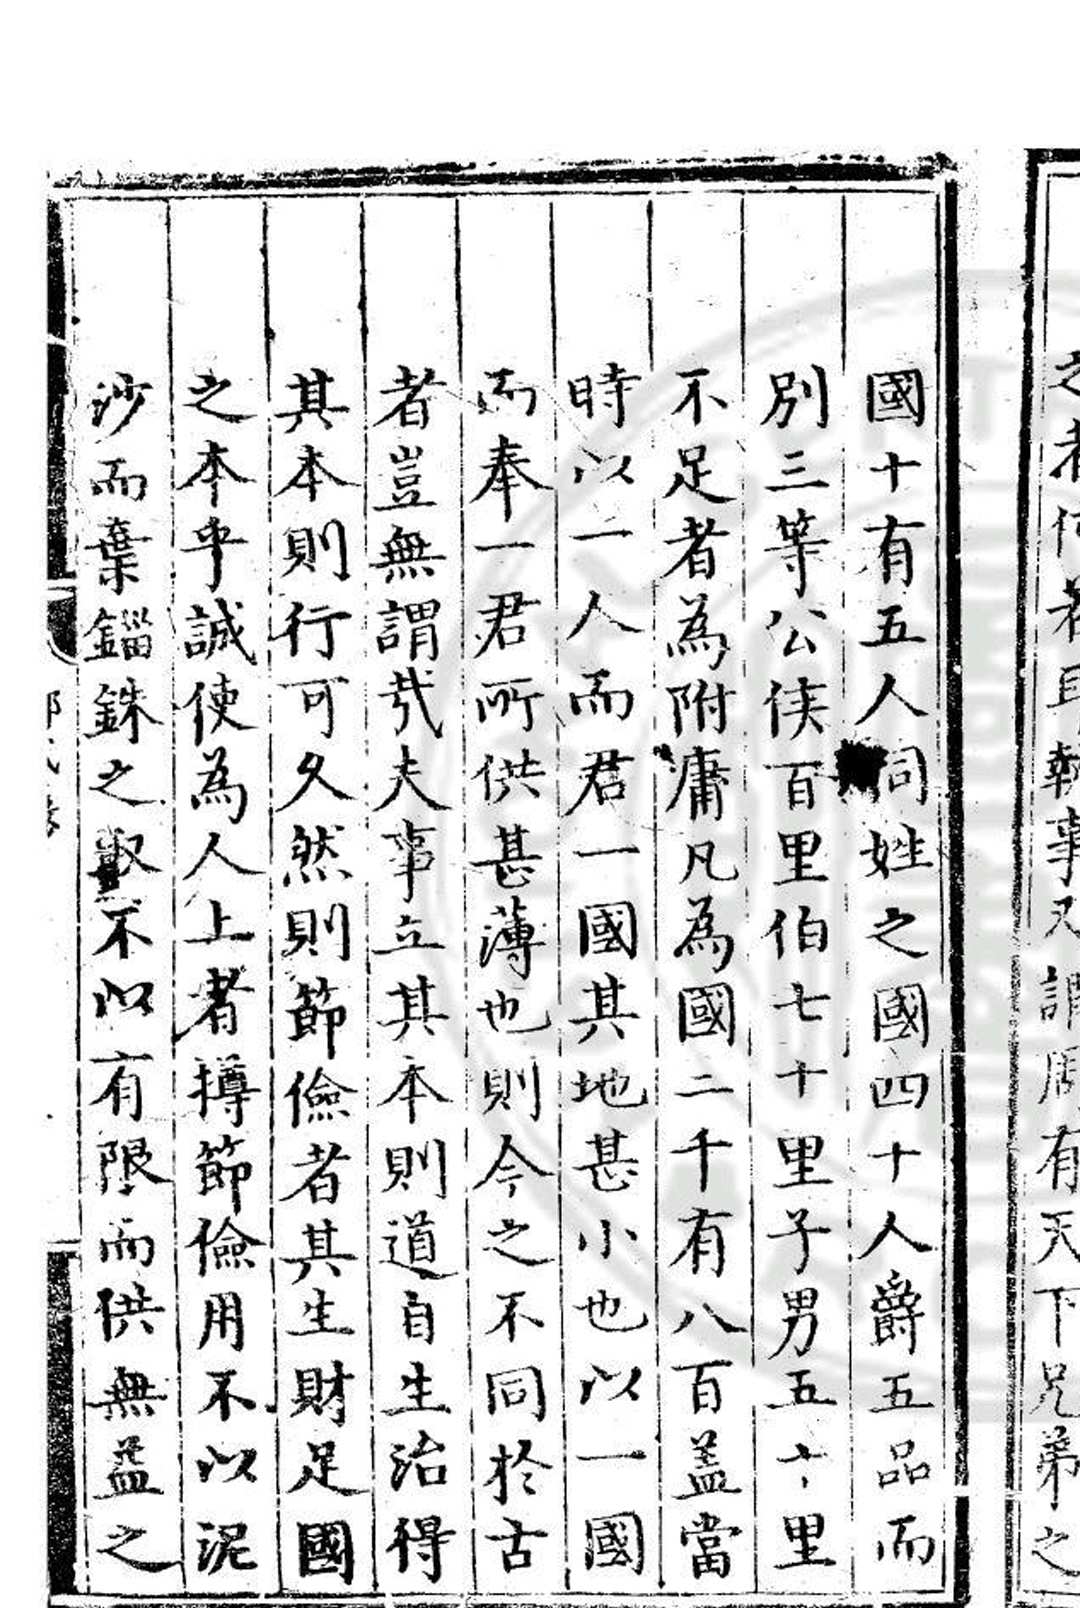 之者何者耳執事又謂周有天下兄弟之
國十有五人同姓之國四十人爵五品而
別三等公侯百里伯七十里子男五十里
不足者為附庸凡為國二千有八百盖當
時以一人而君一國其地甚小也以一國
而奉一君所供甚薄也則今之不同於古
者豈無謂㢤夫事立其本則道自生治得
其本則行可久然則節儉者其生財足國
之本乎誠使為人上者撙節儉用不以泥
沙而棄錙銖之取不以有限而供無益之